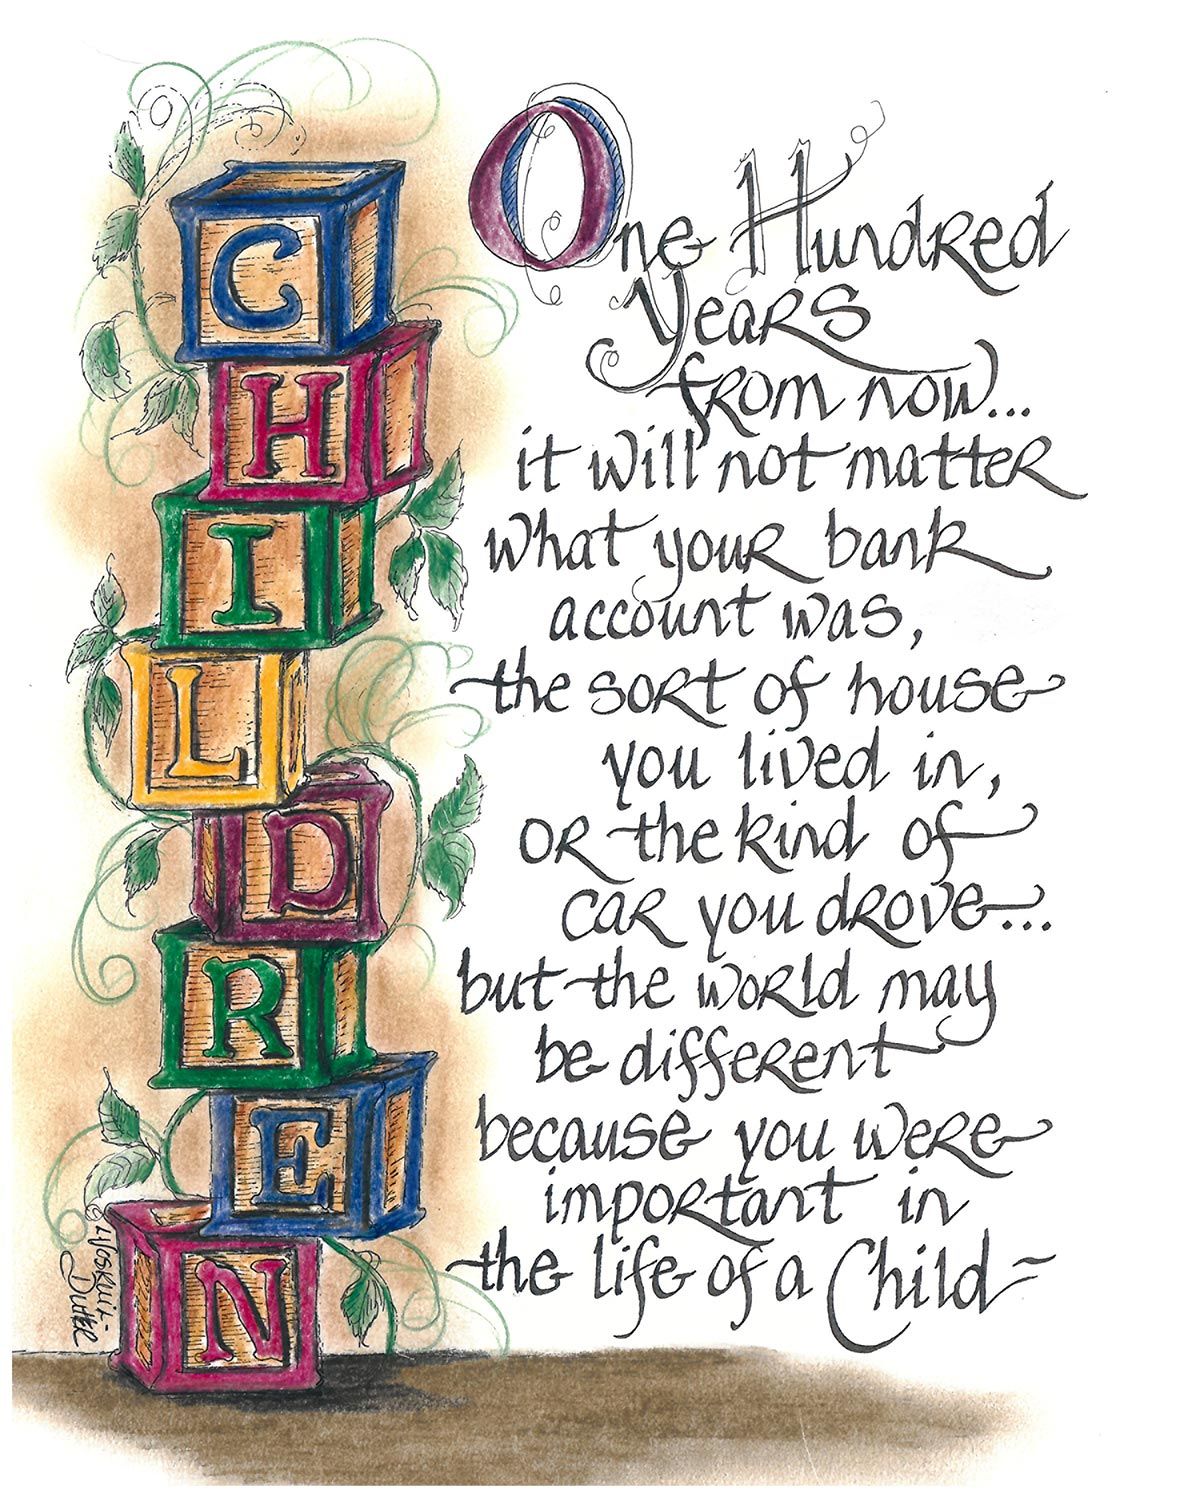 CHILDREN
One Hundred
Years
from now...
it will not matter
what your bank
account was,
the sort of house
you lived in,
or the kind of
car you drove...
but the world may
be different
because you were
important in
the life of a Child~